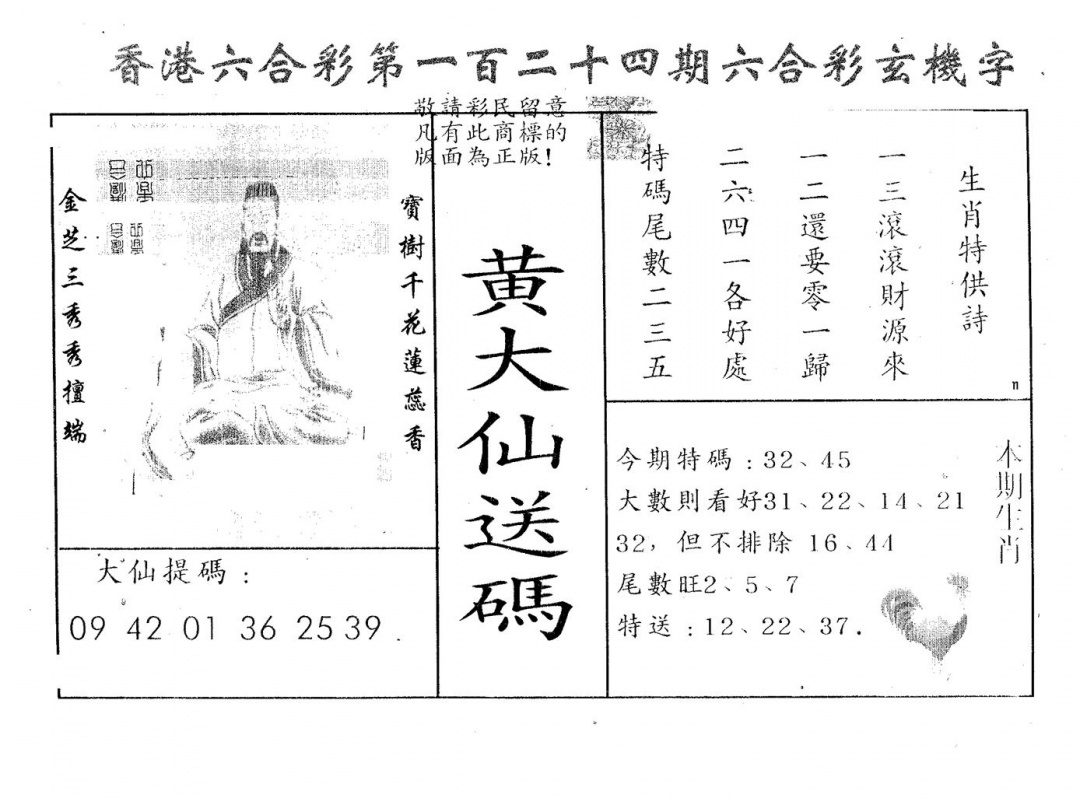 香港六合彩第一百二十四期六合彩玄機字
敬請彩民留意
凡有此商標的
版面為正版!
寶樹千花蓮蕊香
金芝三秀秀擅端
大仙提碼:
09 42 01 36 25 39.
黃大仙送碼
生肖特供詩
一三滾滾財源來
一二還要零一歸
二六四一各好處
特碼尾數二三五
n
本期生肖
今期特碼:32、45
大數則看好31、22、14、21
32,但不排除 16、44
尾數旺2、5、7
特送:12、22、37.